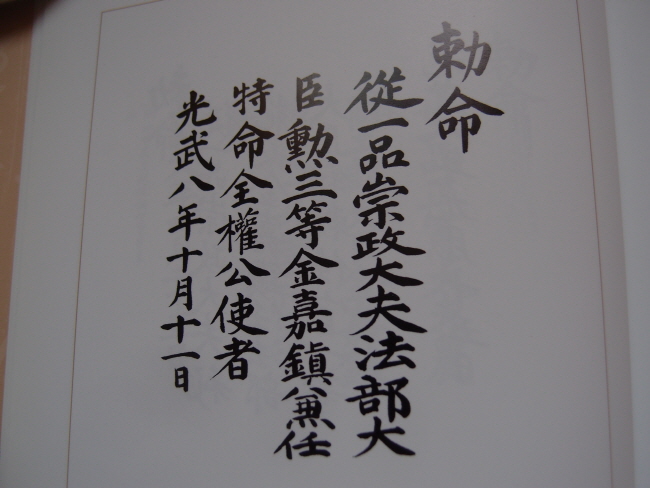 勅命
從一品崇政大夫法部大
臣勲三等金嘉鎭兼任
特命全權公使者
光武八年十月十一日